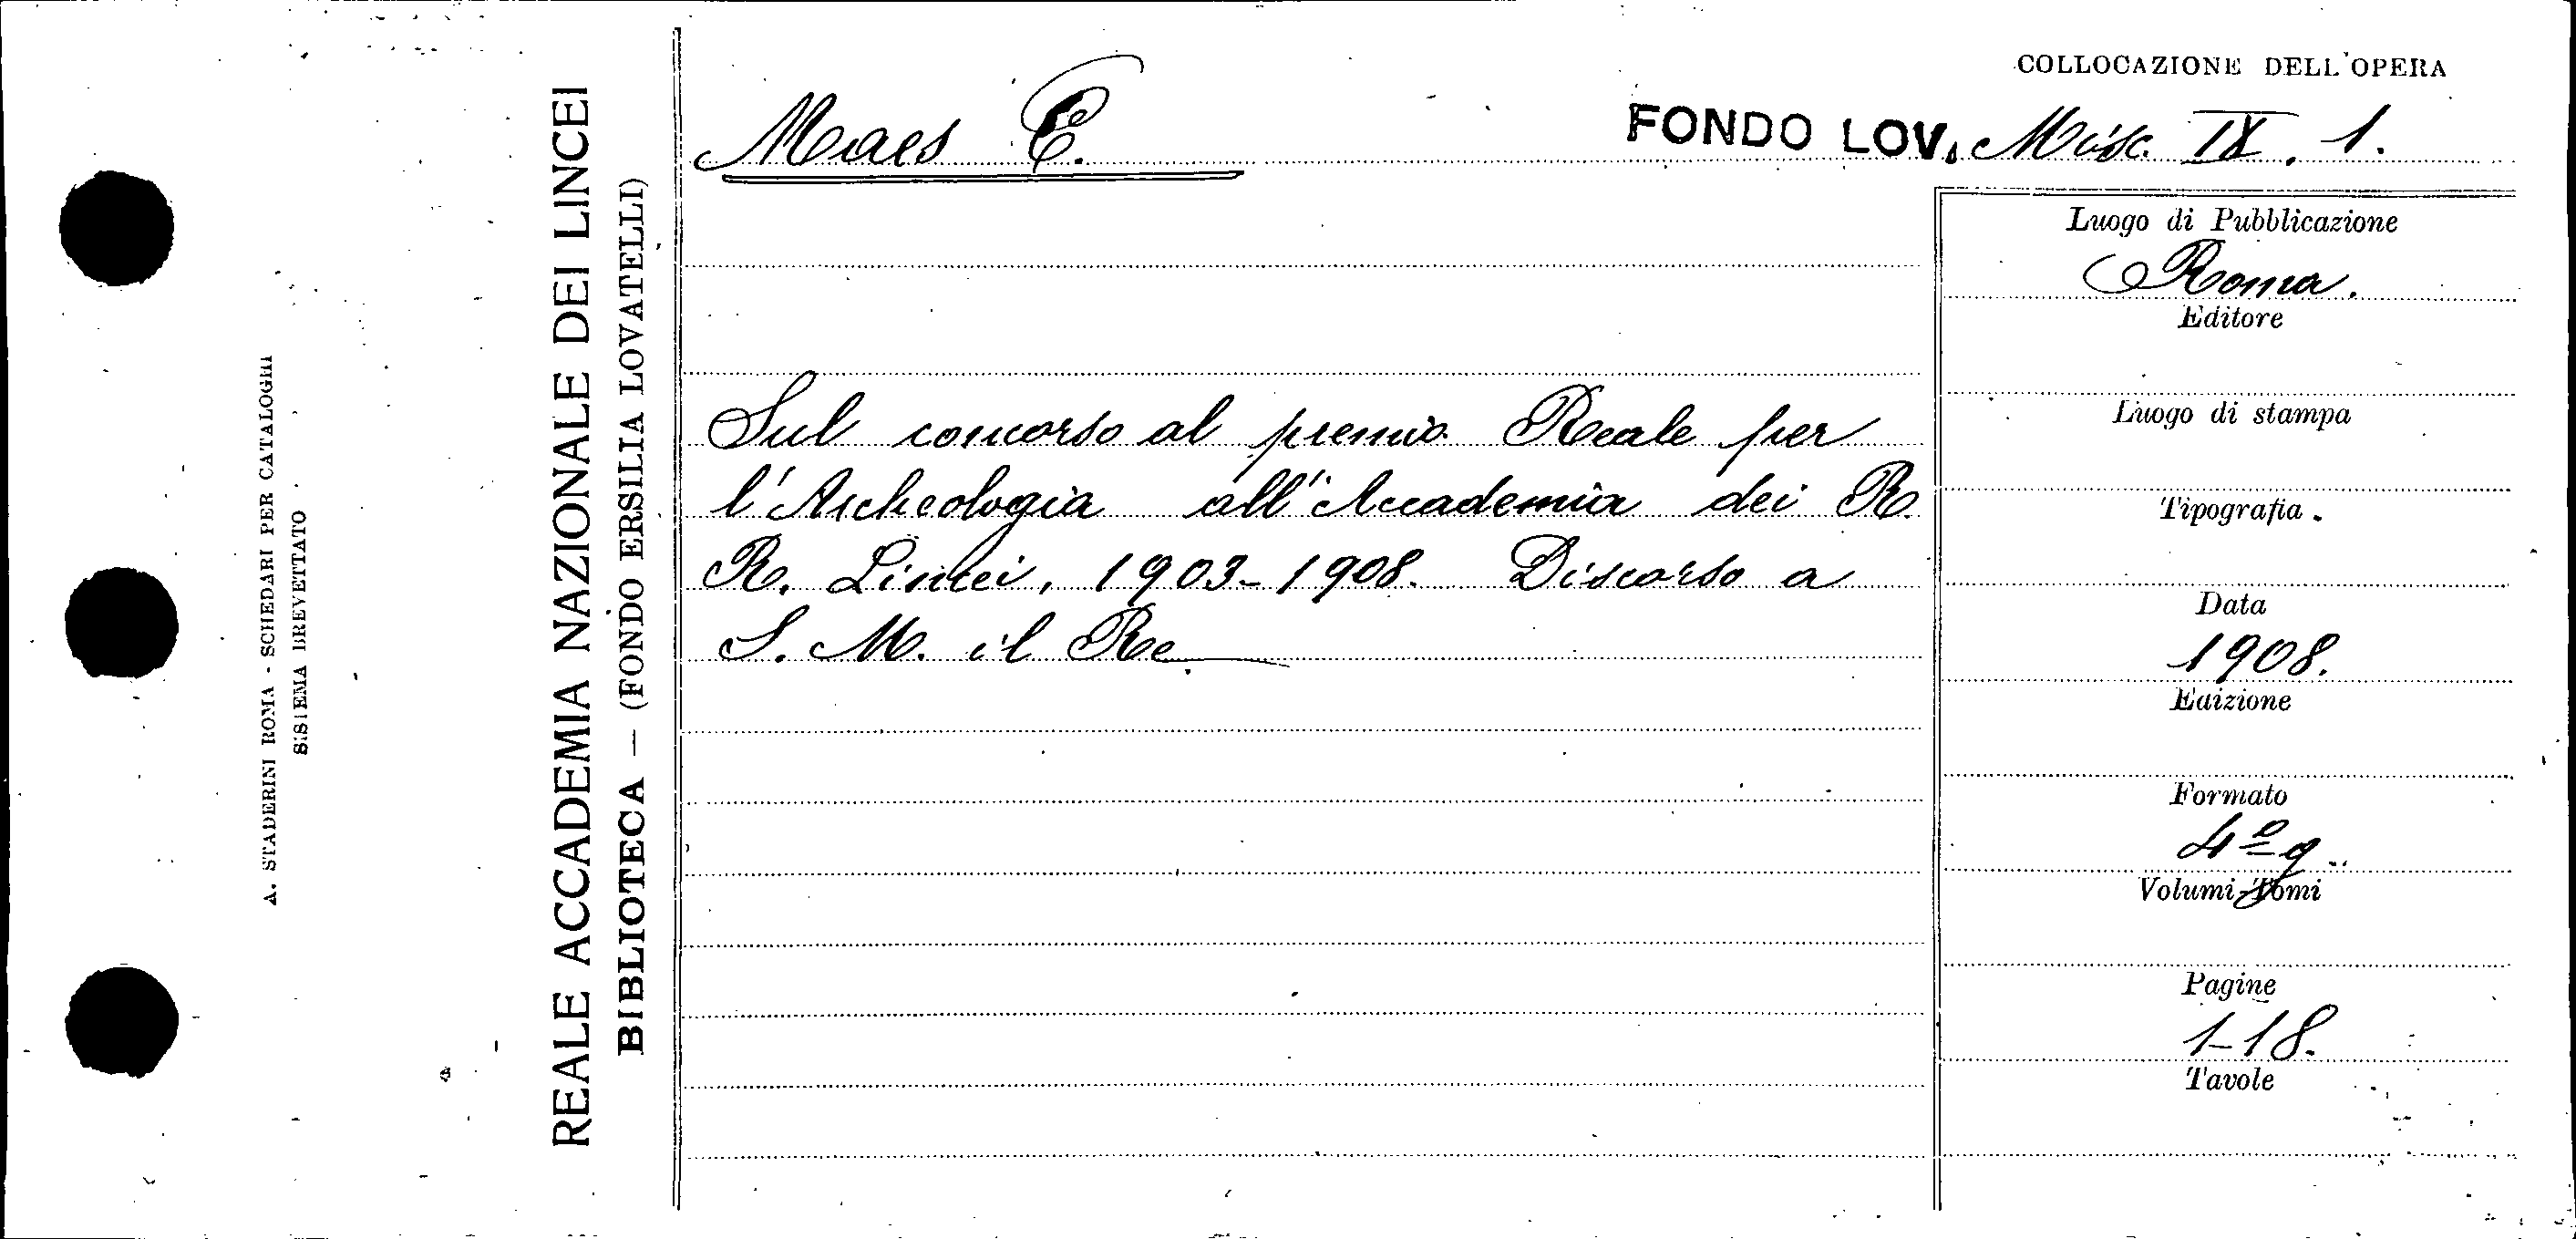 A. STADERINI ROMA - SCHEDARI PER CATALOGHI
SISTEMA BREVETTATO
REALE ACCADEMIA NAZIONALE DEI LINCEI
BIBLIOTECA — (FONDO ERSILIA LOVATELLI)
COLLOCAZIONE DELL'OPERA
Maes C.
FONDO LOV. Misc. IX. 1.
Sul concorso al premio Reale per
l'Archeologia all'Accademia dei R
R. Lincei, 1903-1908. Discorso a
S. M. il Re
Luogo di Pubblicazione
Roma.
Editore
Luogo di stampa
Tipografia.
Data
1908.
Edizione
Formato
4º g.
Volumi-Tomi
Pagine
1-18.
Tavole